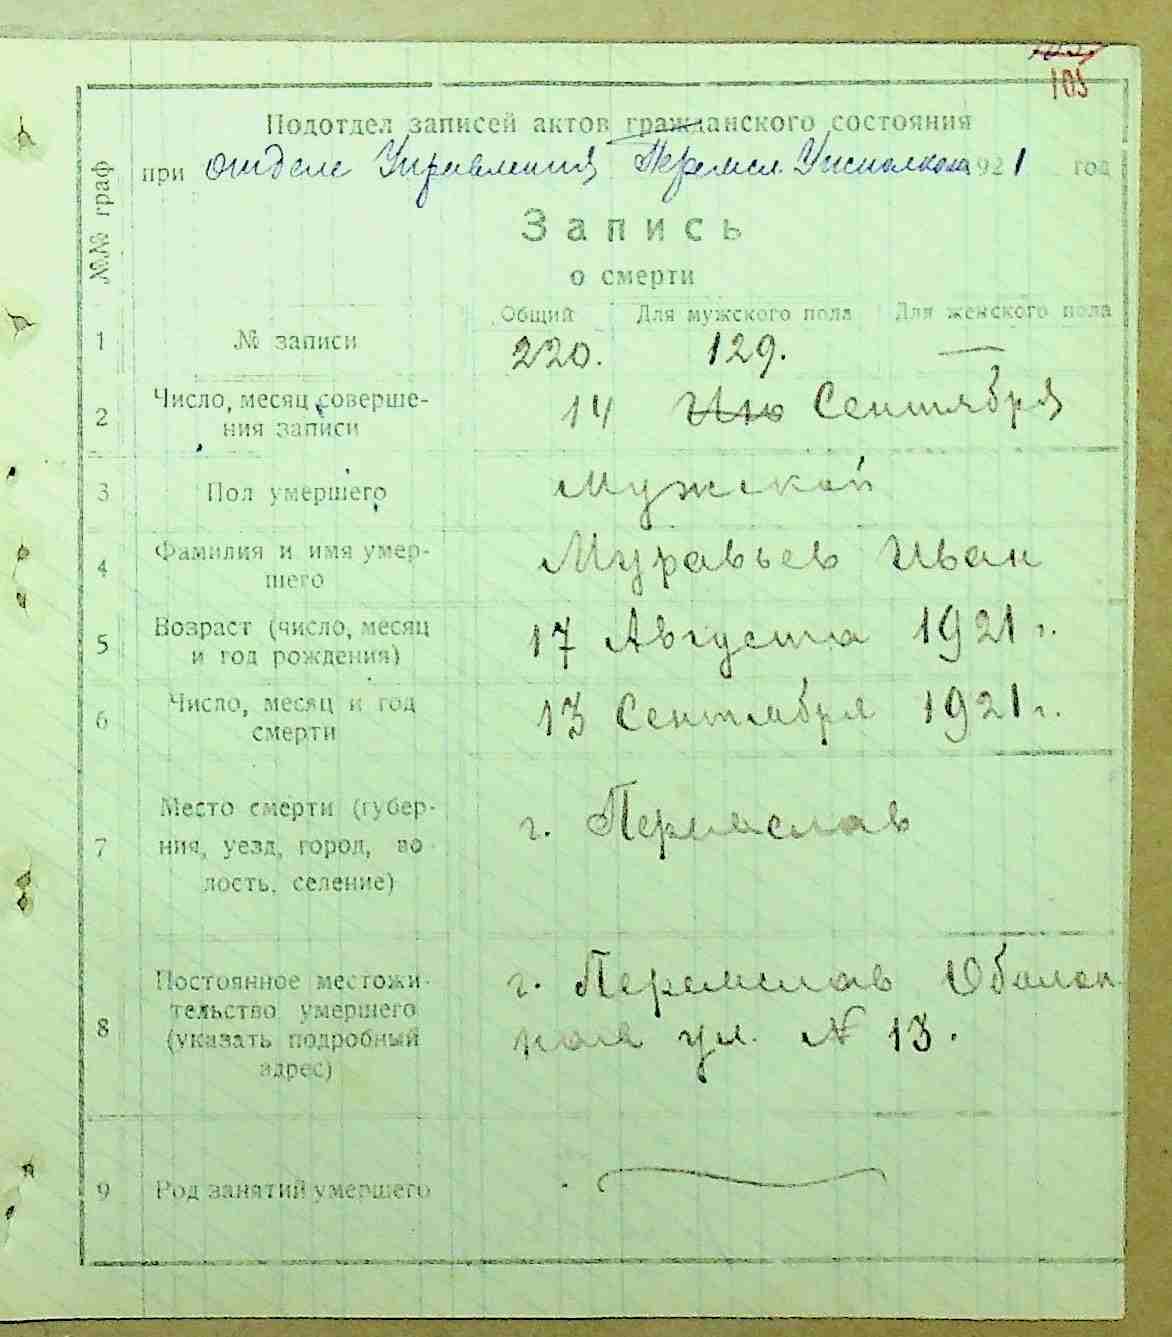 105
Подотдел записей актов гражданского состояния
при отделе Управления Перемсл. Уисполкома 1921 год
№№ граф
Запись
о смерти
Общий Для мужского пола Для женского пола
1 № записи 220. 129. —
2 Число, месяц соверше- 14 Сентября
ния записи
3 Пол умершего Мужской
4 Фамилия и имя умер- Муравьев Иван
шего
5 Возраст (число, месяц 17 Августа 1921 г.
и год рождения)
6 Число, месяц и год 13 Сентября 1921 г.
смерти
7 Место смерти (губер- г. Переяслав
ния, уезд, город, во-
лость, селение)
8 Постоянное местожи- г. Перемслав Оболон
тельство умершего ская ул. № 13.
(указать подробный
адрес)
9 Род занятий умершего